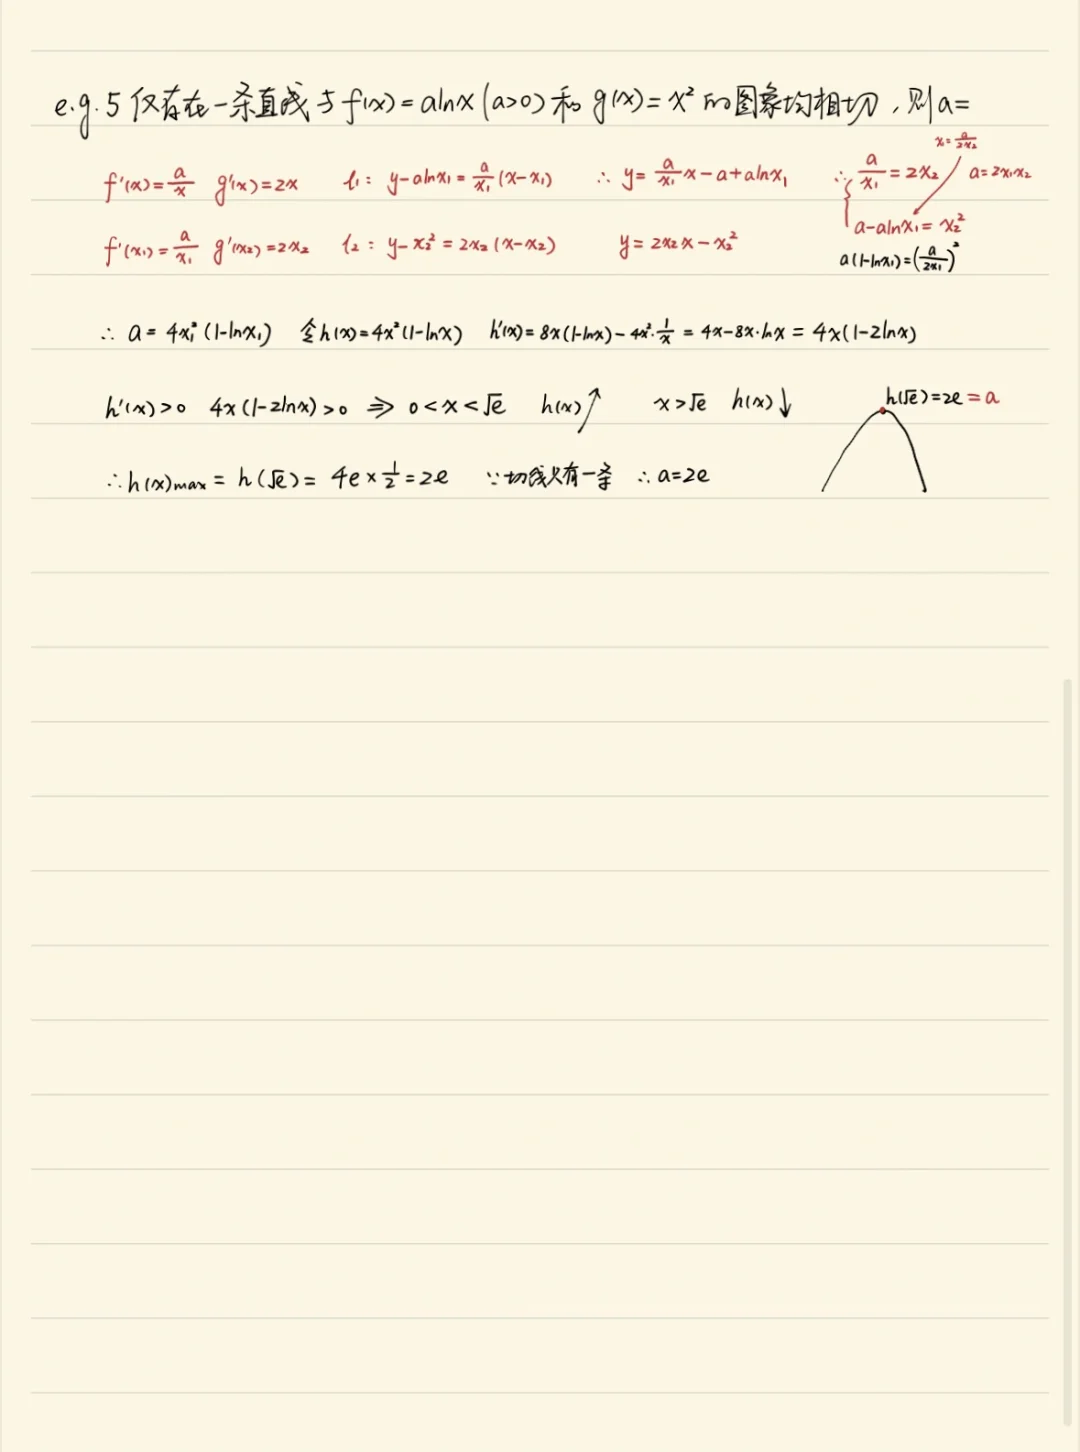 e.g.5 仅存在一条直线与f(x)=alnx(a>0)和g(x)=x²的图象均相切,则a=
x₁=a/2x₂
f'(x)=a/x g'(x)=2x l₁: y-alnx₁=a/x₁(x-x₁) ∴ y=a/x₁x-a+alnx₁ ∴{a/x₁=2x₂ a=2x₁x₂
a-alnx₁=x₂²
f'(x₁)=a/x₁ g'(x₂)=2x₂ l₂: y-x₂²=2x₂(x-x₂) y=2x₂x-x₂² a(1-lnx₁)=(a/2x₁)²
∴ a=4x₁²(1-lnx₁) 令h(x)=4x²(1-lnx) h'(x)=8x(1-lnx)-4x²·1/x=4x-8x·lnx=4x(1-2lnx)
h'(x)>0 4x(1-2lnx)>0 ⇒ 0<x<√e h(x)↗ x>√e h(x)↓ h(√e)=2e=a
∴h(x)max=h(√e)=4e×1/2=2e ∵切线只有一条 ∴a=2e